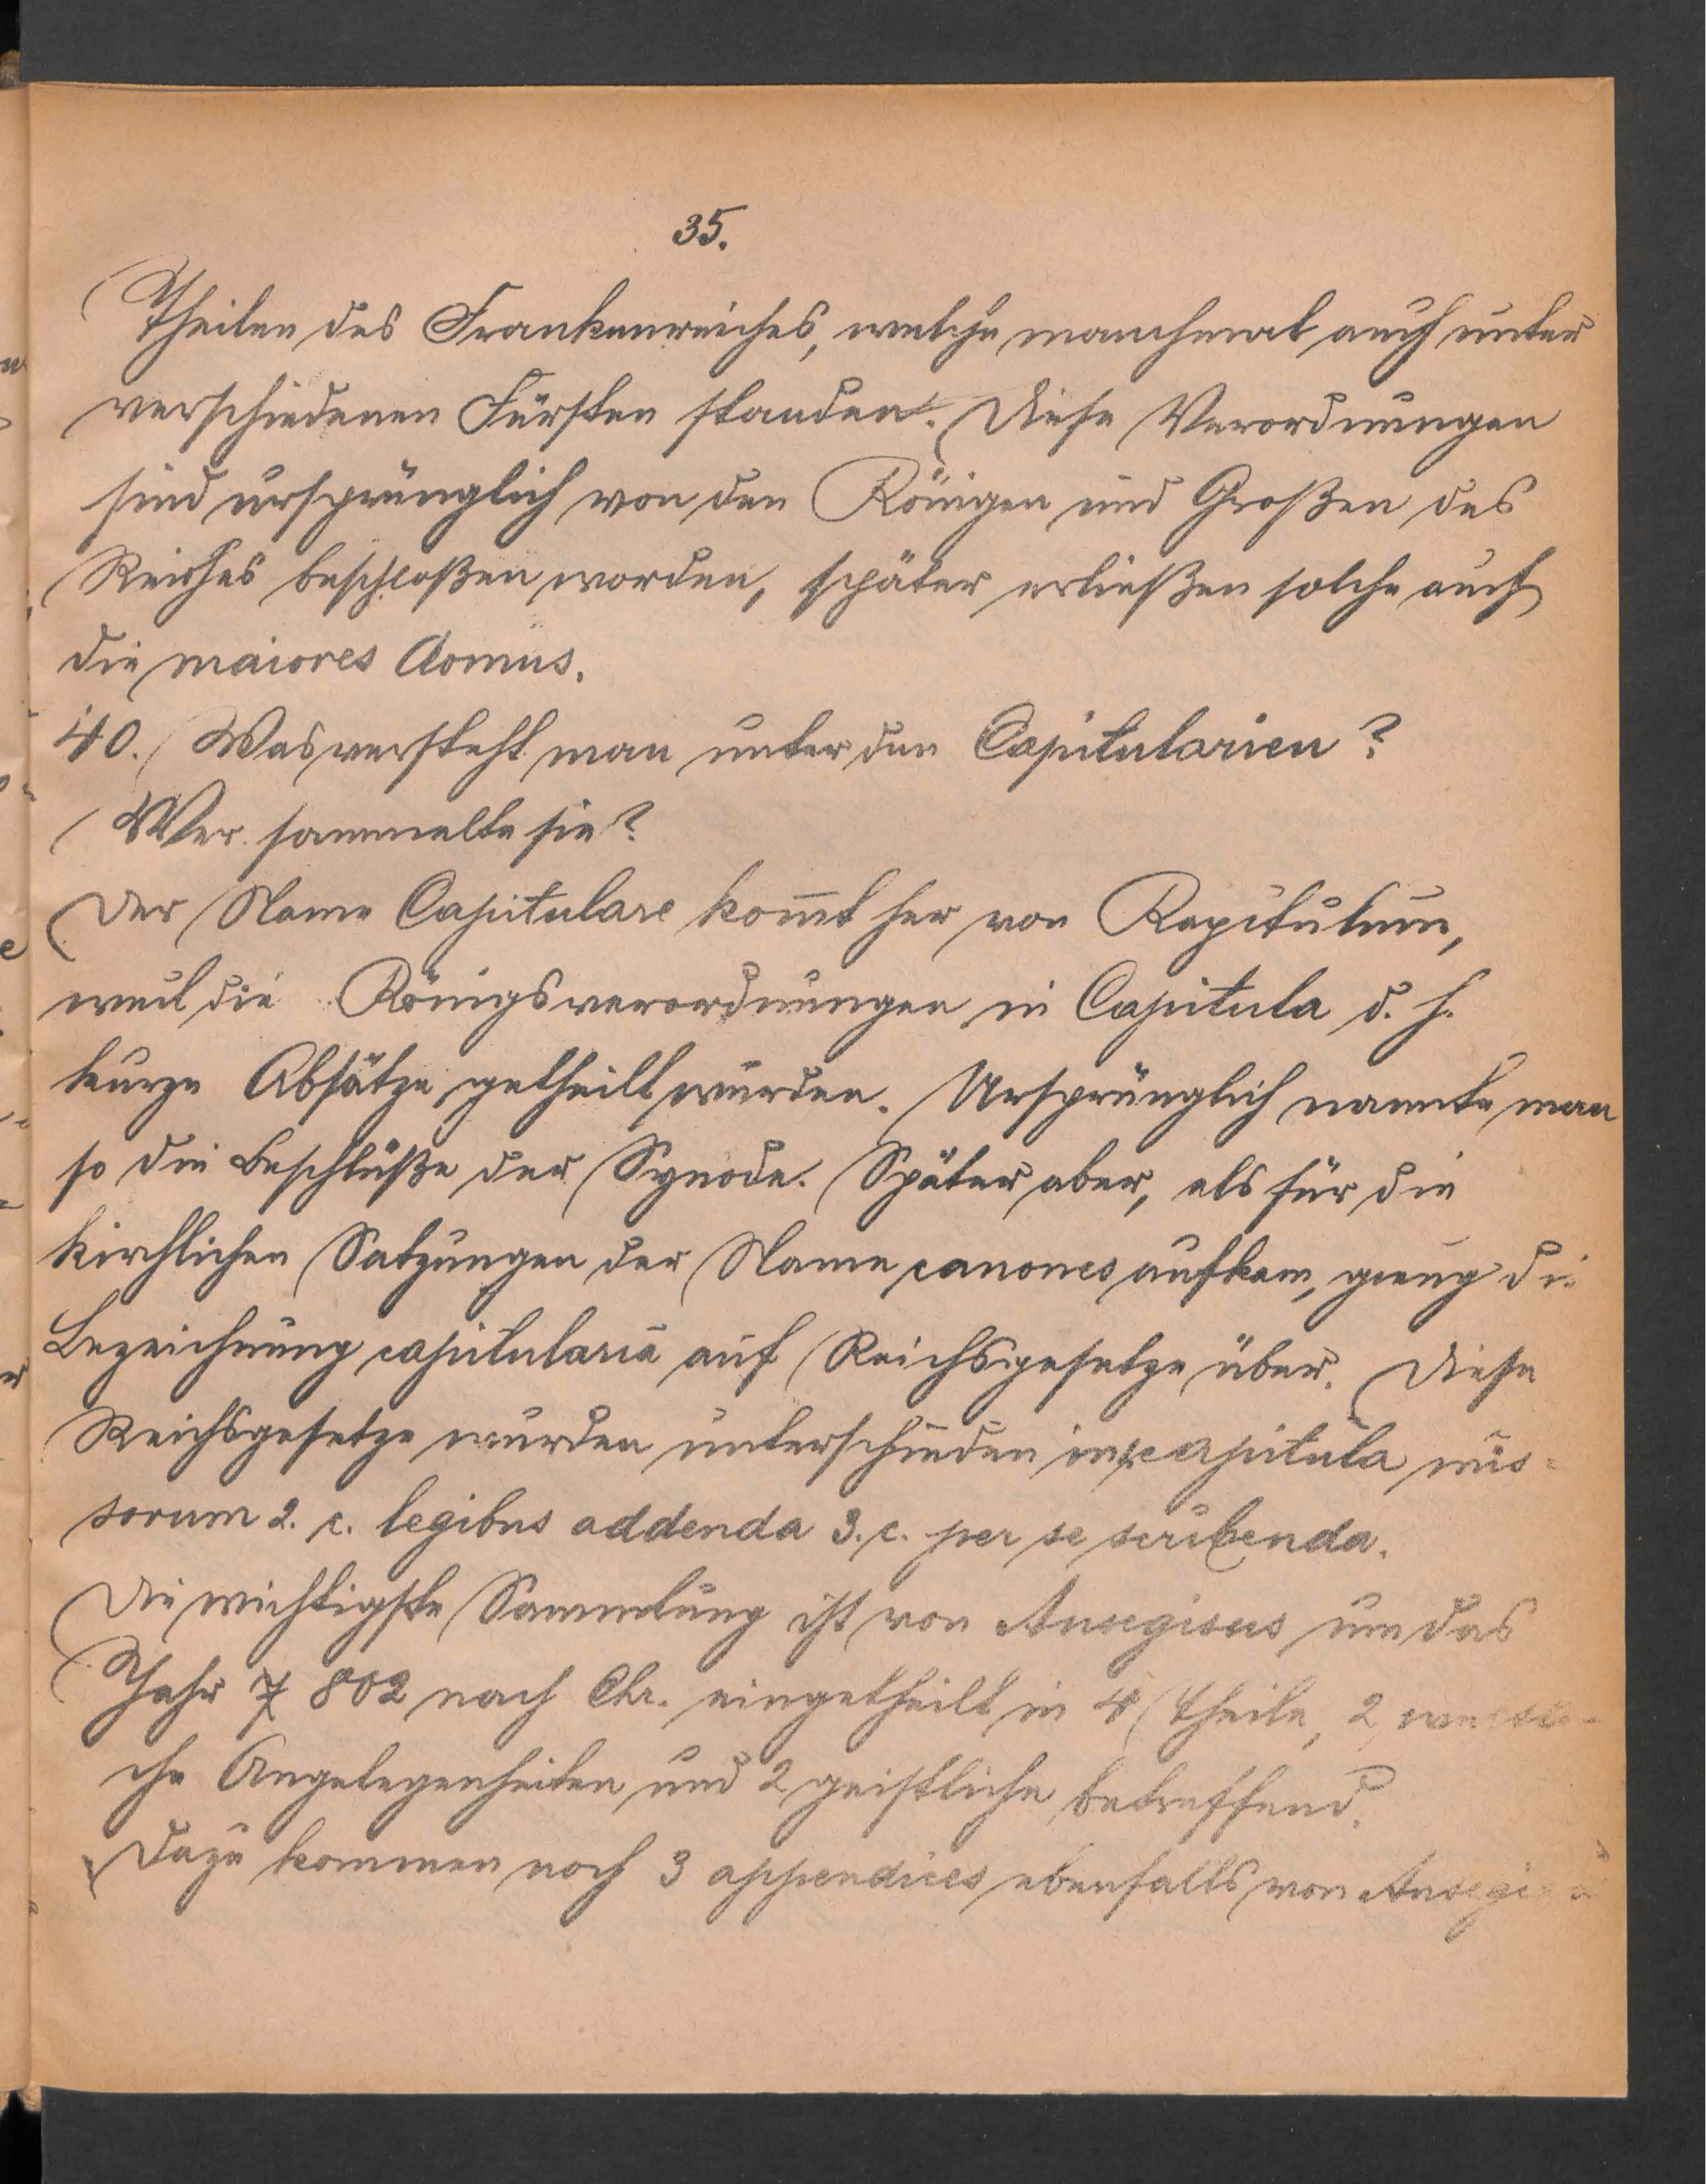 35.
Theilen des Frankenreiches, welche manchmal auch unter
verschiedenen Fürsten standen. Diese Verordnungen
sind ursprünglich von den Königen und Großen des
Reiches beschloßen worden, später erließen solche auch
die maiores domus.
40. Was versteht man unter den Capitularien?
Wer sammelte sie?
Der Name Capitulare kom̄t her von Kapitulum,
weil die Königsverordnungen in Capitula d. h.
kurze Absätze getheilt wurden. Ursprünglich nannte man
so die Beschlüße der Synode. Später aber, als für die
kirchlichen Satzungen der Name canones aufkam, gieng die
Bezeichnung capitularia auf Reichsgesetze über. Diese
Reichsgesetze wurden unterschieden in capitula mis=
sorum 2. c. legibus addenda 3. c. per se scribenda.
Die wichtigste Sammlung ist von Ansegisus um das
Jahr 802 nach Chr. eingetheilt in 4 Theile, 2 weltli-
che Angelegenheiten und 2 geistliche betreffend.
Dazu kommen noch 3 appendices ebenfalls von